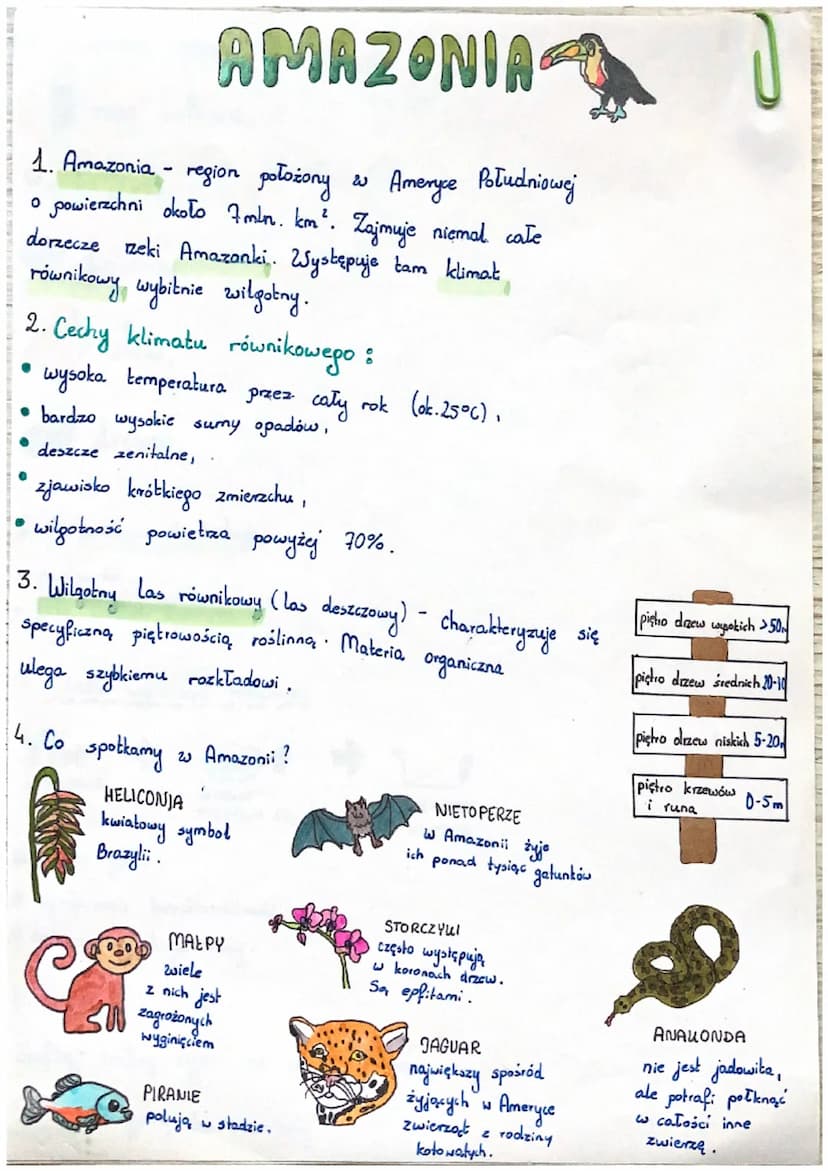 AMAZONIA
1. Amazonia - region położony w Ameryce Południowej
o powierzchni około 7mln. km². Zajmuje niemal całe
dorzecze rzeki Amazonki. Występuje tam klimat
równikowy wybitnie wilgotny.
2. Cechy klimatu równikowego:
• wysoka temperatura przez cały rok (ok. 25°C),
• bardzo wysokie sumy opadów,
• deszcze zenitalne,
• zjawisko krótkiego zmierzchu,
• wilgotność powietrza powyżej 70%.
3. Wilgotny las równikowy (las deszczowy) - charakteryzuje się
specyficzną piętrowością roślinną. Materia organiczna
ulega szybkiemu rozkładowi.
piętro drzew wysokich >50m
piętro drzew średnich
piętro drzew niskich 5-20m
piętro krzewów
i runa 0-5m
4. Co spotkamy w Amazonii?
HELICONIA
kwiatowy symbol
Brazylii.
NIETOPERZE
w Amazonii żyje
ich ponad tysiąc gatunków
MAŁPY
wiele
z nich jest
zagrożonych
wyginięciem
STORCZYKI
często występują
w koronach drzew.
Są epfitami.
PIRANIE
polują w stadzie.
JAGUAR
największy spośród
żyjących w Ameryce
zwierząt z rodziny
kotowatych.
ANAKONDA
nie jest jadowita,
ale potrafi połknąć
w całości inne
zwierzę.